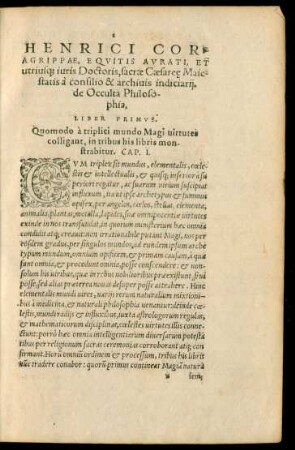 HENRICI COR
AGRIPPAE, EQVITIS AVRATI, ET
utriusq; iuris Doctoris, sacræ Cæsareę Maie-
statis à consilio & archiuis indiciarij,
de Occulta Philoso-
phia,
LIBER PRIMVS.
Quomodo à triplici mundo Magi uirtutes
colligant, in tribus his libris mon-
strabitur. CAP. I.
CVM triplex sit mundus, elementalis, cœle-
stis & intellectualis, & quisq; inferior à su
periori regatur, ac suarum uirium suscipiat
influxum, ita ut ipse archetypus & summus
opifex, per angelos, cœlos, stellas, elementa,
animalia, plantas, metalla, lapides, suæ omnipotentiæ uirtutes
exinde in nos transfundat, in quorum ministerium hæc omnia
condidit atq; creauit: non irrationabile putant Magi, nos per
eosdem gradus, per singulos mundos, ad eundem ipsum arche
typum mundum, omnium opificem, & primam causam, à qua
sunt omnia, & procedunt omnia, posse conscendere: & non
solum his uiribus, quæ in rebus nobilioribus præexistunt, frui
posse, sed alias præterea nouas desuper posse attrahere. Hinc
elementalis mundi uires, uarijs rerum naturalium mixtioni-
bus à medicina, & naturali philosophia uenantur: deinde cœ-
lestis, mundi radijs & influxibus, iuxta astrologorum regulas,
& mathematicorum disciplinas, cœlestes uirtutes illis conne-
ctunt: porrò hæc omnia intelligentiarum diuersarum potesta
tibus per religionum sacras ceremonias corroborant atq; con
firmant. Horũ omniũ ordinem & processum, tribus his libris
nũc tradere conabor: quorũ primus contineat Magiã naturã
a lem,